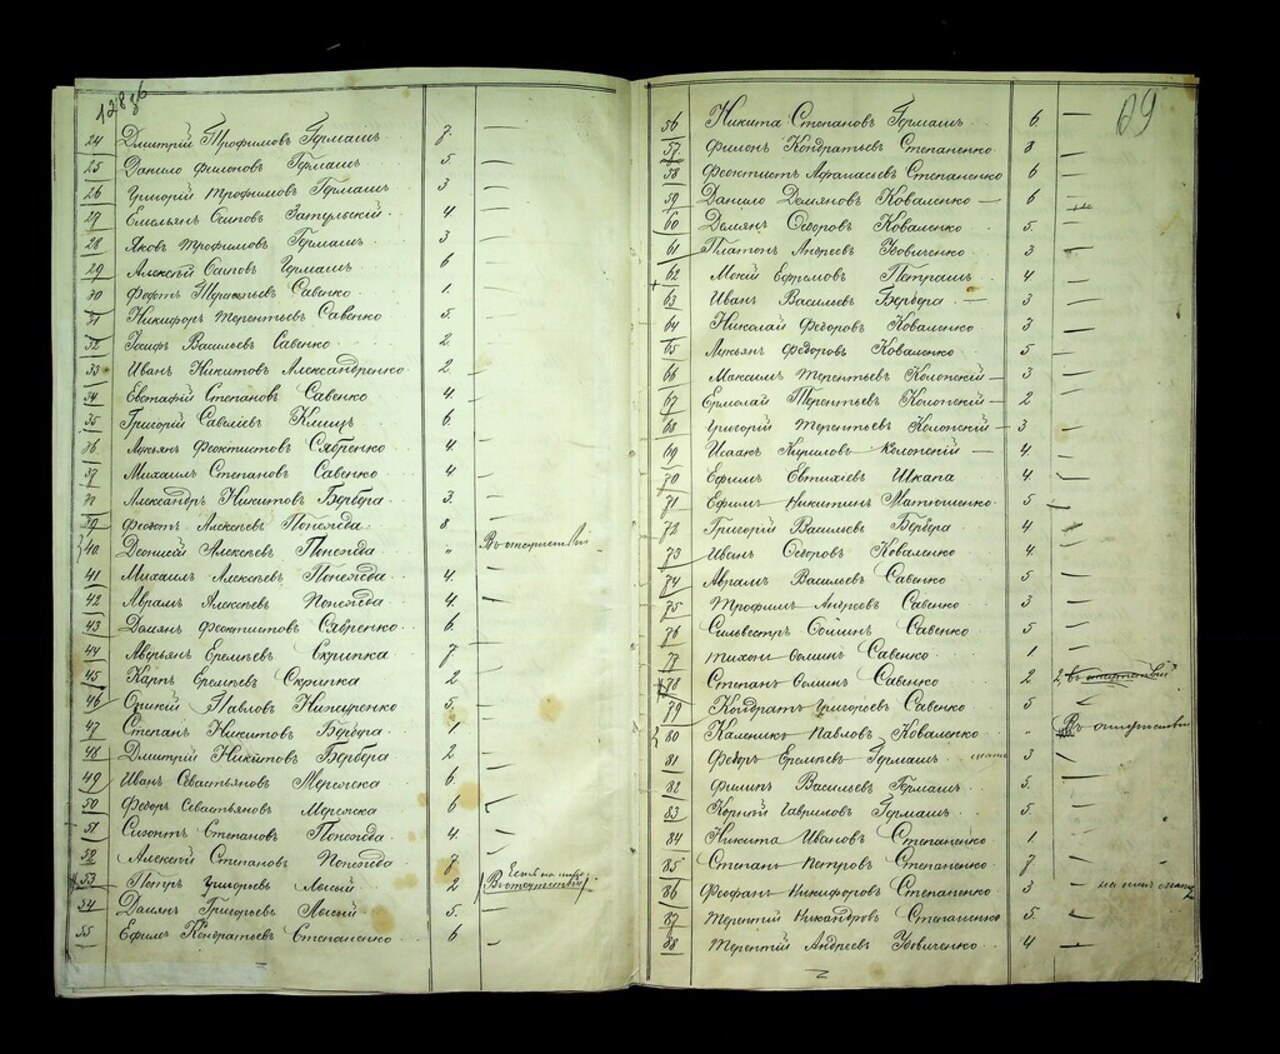 12836
24 Дмитрій Трофимовъ Гермашъ 7. —
25 Данило Филоновъ Гермашъ 5. —
26 Григорій Трофимовъ Гермашъ 3 —
27 Емельянъ Осиповъ Затульскій 4. —
28 Яковъ Трофимовъ Гермашъ 3 —
29 Алексѣй Осиповъ Гермашъ 6 —
30 Федотъ Терентьевъ Савенко 1. —
31 Никифоръ Терентьевъ Савенко 5. —
32 Іосифъ Васильевъ Савенко 2. —
33 Иванъ Никитовъ Александренко 2. —
34 Евстафій Степановъ Савенко 4. —
35 Григорій Савеліевъ Клищъ 6. —
36 Лукьянъ Феоктистовъ Сябренко 4. —
37 Михаилъ Степановъ Савенко 4 —
38 Александръ Никитовъ Бербера 3. —
39 Федотъ Алексѣевъ Понежда 8 —
40 Деонисій Алексѣевъ Понежда " Въ отсутствіи
41 Михаилъ Алексѣевъ Понежда 4. —
42 Аврамъ Алексѣевъ Понежда 4. —
43 Демянъ Феоктистовъ Сябренко 6. —
44 Аверьянъ Еремѣевъ Скрипка 7 —
45 Карпъ Еремѣевъ Скрипка 2 —
46 Павловъ 5. —
47 Степанъ Никитовъ Бербера 1 —
48 Дмитрій Никитовъ Бербера 2 —
49 Иванъ Севастьяновъ Мережка 6. —
50 Федоръ Севастьяновъ Мережка 6
51 Сизонтъ Степановъ Понежда 4. —
52 Алексѣй Степановъ Понежда 7. —
53 Петръ Григорьевъ Лысый 2 Въ отсутствіи
54 Дамянъ Григорьевъ Лысый 5. —
55 Ефимъ Кондратьевъ Степаненко 6 —
69
56 Никита Степановъ Гермашъ 6. —
57. Филонъ Кондратьевъ Степаненко 8 —
58 Феоктистъ Афанасьевъ Степаненко 6 —
59 Данило Демяновъ Коваленко — 6
60 Демянъ Федоровъ Коваленко 5. —
61 Платонъ Андреевъ Удовиченко 3 —
62 Мокій Ефремовъ Петрашъ 4 —
63 Иванъ Васильевъ Бербера — 3 —
64 Николай Федоровъ Коваленко 3 —
65 Лукьянъ Федоровъ Коваленко 5 —
66 Максимъ Терентьевъ Колонскій — 3 —
67 Ермолай Терентьевъ Колонскій — 2 —
68 Григорій Терентьевъ Колонскій — 3 —
69 Исаакъ Кириловъ Колонскій — 4. —
70 Ефимъ Евтихіевъ Шкапа 4. —
71 Ефимъ Никитинъ Матюшенко 5 —
72 Григорій Васильевъ Бербера 4 —
73 Иванъ Федоровъ Коваленко 4. —
74 Аврамъ Васильевъ Савенко 5 —
75 Трофимъ Андреевъ Савенко 3 —
76 Сильвестръ Савенко 5 —
77 Тихонъ Савенко 1. —
78 Степанъ Савенко 2 2, въ отсутствіи
79 Кондратъ Григорьевъ Савенко 5 —
80 Каленикъ Павловъ Коваленко " Въ отсутствіи
81 Федоръ Еремѣевъ Гермашъ 3 —
82 Филипъ Васильевъ Гермашъ 5. —
83 Корнѣй Гавриловъ Гермашъ 5. —
84 Никита Ивановъ Степаненко 1. —
85 Степанъ Петровъ Степаненко 7 —
86 Феофанъ Никифоровъ Степаненко 3 —
87 Терентій Никандровъ Степаненко 5. —
88 Терентій Андреевъ Удовиченко 4 —